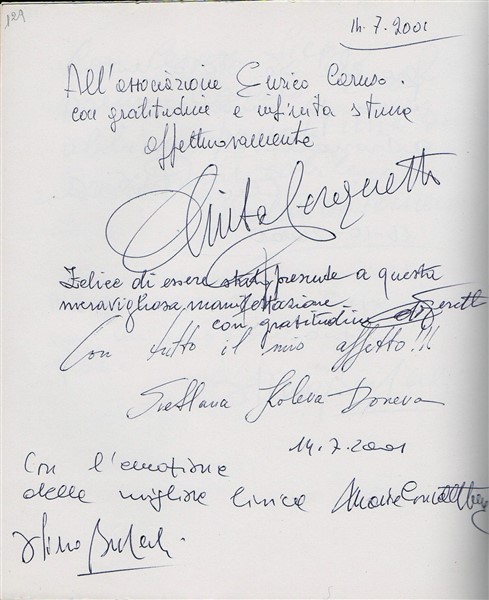 129
14.7.2001
All'associazione Enrico Caruso.
con gratitudine e infinita stima
affettuosamente
Anita Cerquetti
Felice di essere stata presente a questa
meravigliosa manifestazione
con gratitudine
Con tutto il mio affetto!!!
Svetlana Koleva Doneva
14.7.2001
Con l'emozione
della migliore lirica